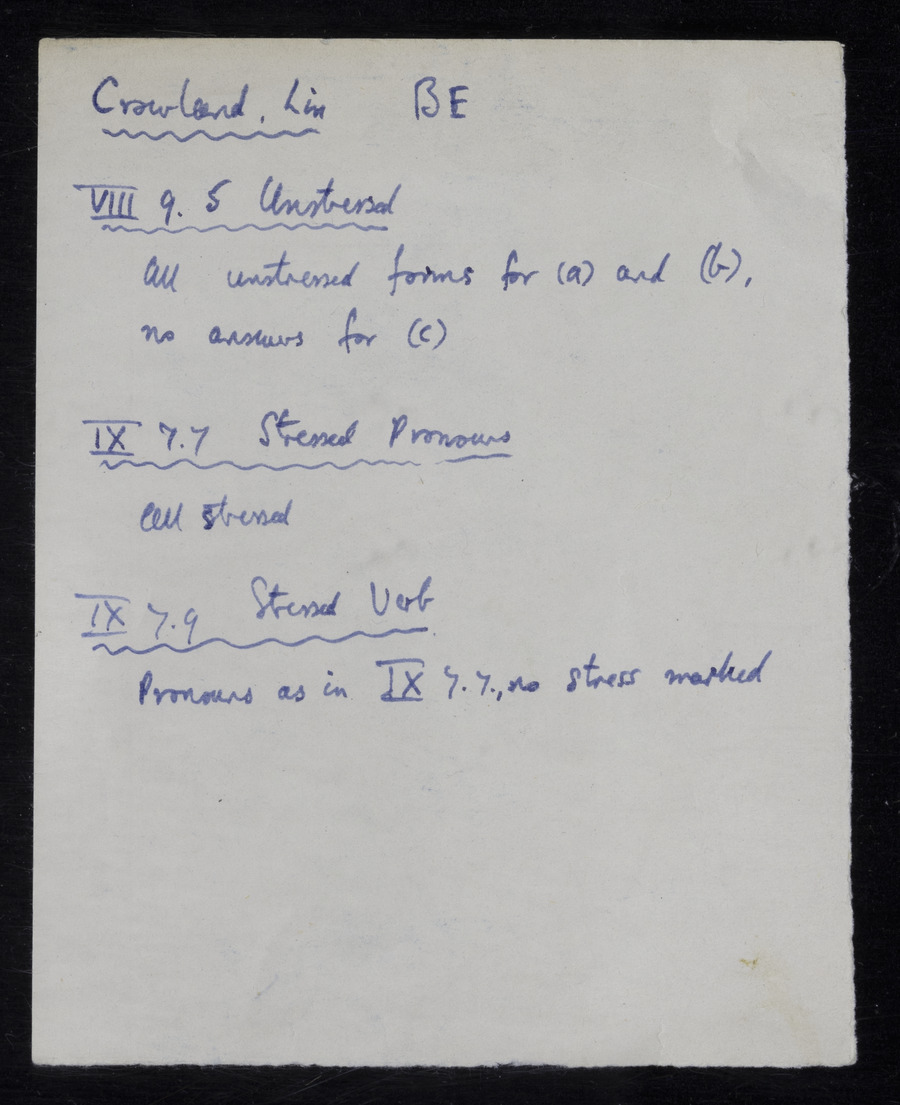 Crowland, Lin BE
VIII 9.5 Unstressed
All unstressed forms for (a) and (b),
no answers for (c)
IX 7.7 Stressed Pronouns
All stressed
IX 7.9 Stressed Verb
Pronouns as in IX 7.7., no stress marked